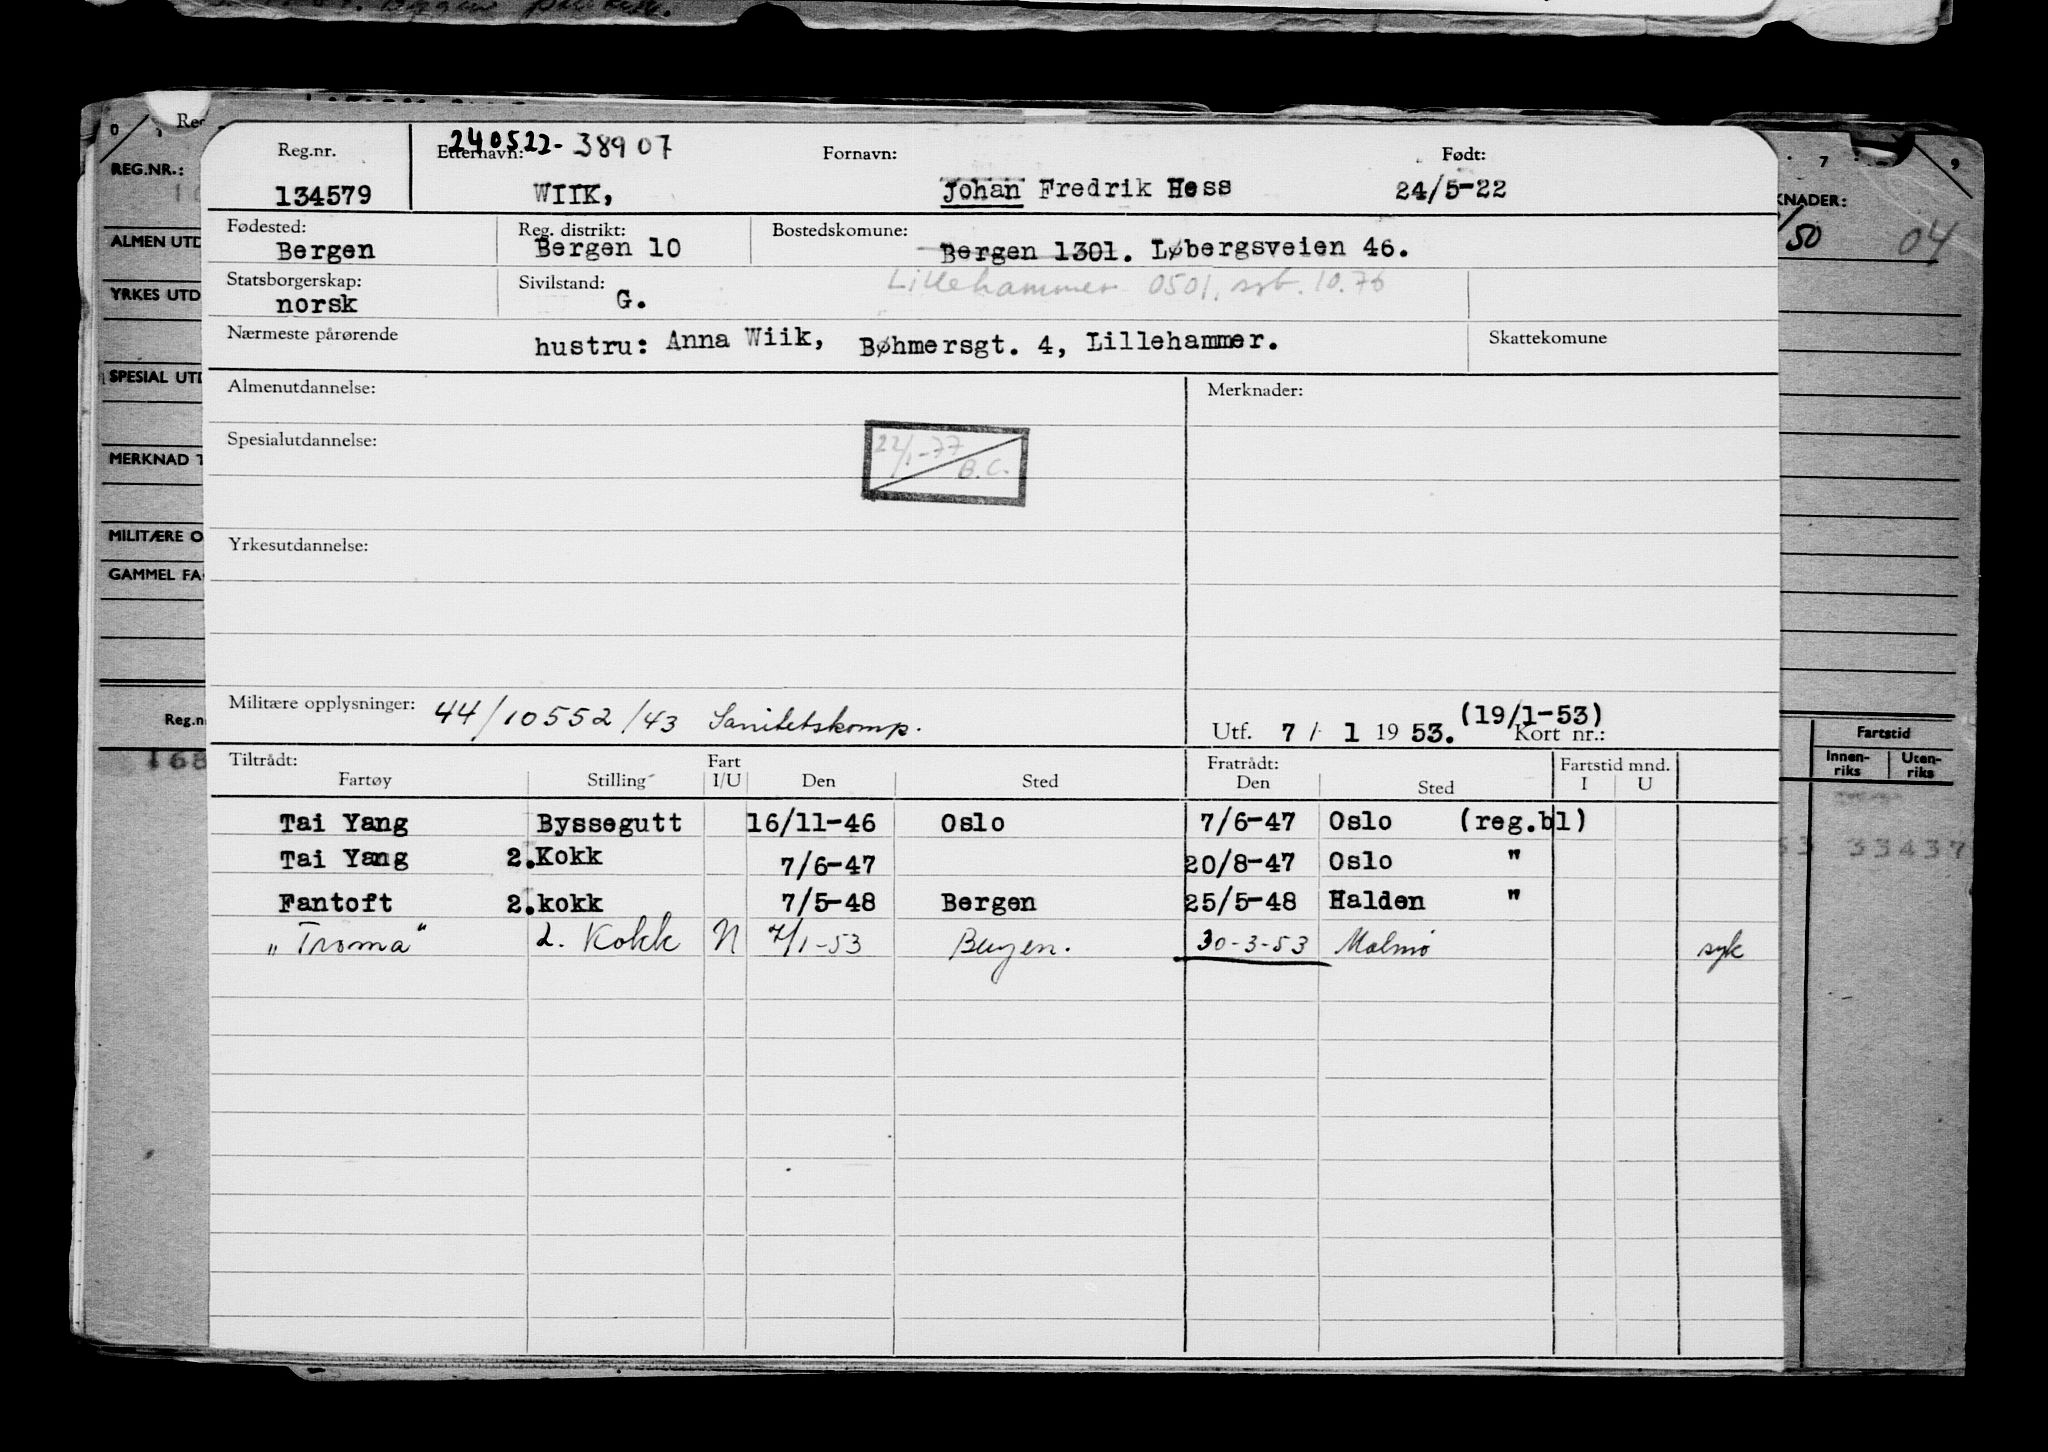 Reg.nr. Etternavn: 240522-38907 Fornavn: Født:
134579 WIIK, Johan Fredrik Hess 24/5-22
Fødested: Reg. distrikt: Bostedskomune:
Bergen Bergen 10 Bergen 1301. Løbergsveien 46.
Statsborgerskap: Sivilstand: Lillehammer 0501, 10.76
norsk G.
Nærmeste pårørende hustru: Anna Wiik, Bøhmersgt. 4, Lillehammer. Skattekomune
Almenutdannelse: Merknader:
Spesialutdannelse: 22/1-77
B.C.
Yrkesutdannelse:
Militære opplysninger: 44/10552/43 Sanitetskomp. (19/1-53)
Utf. 7/ 1 1953. Kort nr.:
Tiltrådt: Fart Fratrådt: Fartstid mnd.
Fartøy Stilling I/U Den Sted Den Sted I U
Tai Yang Byssegutt 16/11-46 Oslo 7/6-47 Oslo (reg.bl)
Tai Yang 2.Kokk 7/6-47 20/8-47 Oslo "
Fantoft 2.kokk 7/5-48 Bergen 25/5-48 Halden "
"Troma" 2. Kokk N 7/1-53 Bergen. 30-3-53 Malmø syk
REG.NR.:
ALMEN UTD
YRKES UTD
SPESIAL UTD
MERKNAD T
MILITÆRE O
GAMMEL FA
Reg.n
168
0
7 9
KNADER:
/50 04
Fartstid
Innen-
riks
Uten-
riks
53 33437